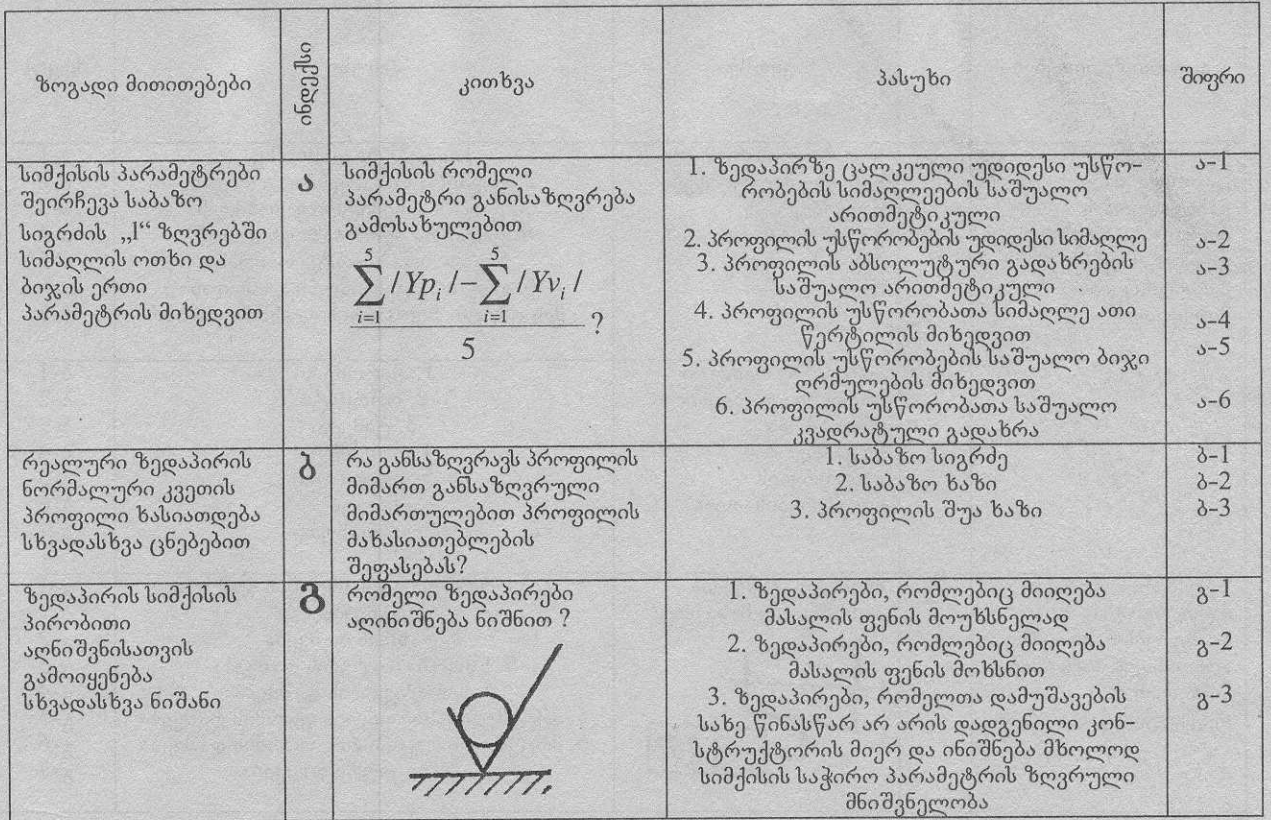 ზოგადი მითითებები
ინდექსი
კითხვა
პასუხი
შიფრი
სიმქისის პარამეტრები
შეირჩევა საბაზო
სიგრძის „l“ ზღვრებში
სიმაღლის ოთხი და
ბიჯის ერთი
პარამეტრის მიხედვით
ა
სიმქისის რომელი
პარამეტრი განისაზღვრება
გამოსახულებით
5 5
∑ /Ypᵢ /−∑ /Yvᵢ /
i=1 i=1
5
?
1. ზედაპირზე ცალკეული უდიდესი უსწო-
რობების სიმაღლეების საშუალო
არითმეტიკული
2. პროფილის უსწორობების უდიდესი სიმაღლე
3. პროფილის აბსოლუტური გადახრების
საშუალო არითმეტიკული
4. პროფილის უსწორობათა სიმაღლე ათი
წერტილის მიხედვით
5. პროფილის უსწორობების საშუალო ბიჯი
ღრმულების მიხედვით
6. პროფილის უსწორობათა საშუალო
კვადრატული გადახრა
ა-1
ა-2
ა-3
ა-4
ა-5
ა-6
რეალური ზედაპირის
ნორმალური კვეთის
პროფილი ხასიათდება
სხვადასხვა ცნებებით
ბ
რა განსაზღვრავს პროფილის
მიმართ განსაზღვრული
მიმართულებით პროფილის
მახასიათებლების
შეფასებას?
1. საბაზო სიგრძე
2. საბაზო ხაზი
3. პროფილის შუა ხაზი
ბ-1
ბ-2
ბ-3
ზედაპირის სიმქისის
პირობითი
აღნიშვნისათვის
გამოიყენება
სხვადასხვა ნიშანი
გ
რომელი ზედაპირები
აღინიშნება ნიშნით ?
1. ზედაპირები, რომლებიც მიიღება
მასალის ფენის მოუხსნელად
2. ზედაპირები, რომლებიც მიიღება
მასალის ფენის მოხსნით
3. ზედაპირები, რომელთა დამუშავების
სახე წინასწარ არ არის დადგენილი კონ-
სტრუქტორის მიერ და ინიშნება მხოლოდ
სიმქისის საჭირო პარამეტრის ზღვრული
მნიშვნელობა
გ-1
გ-2
გ-3